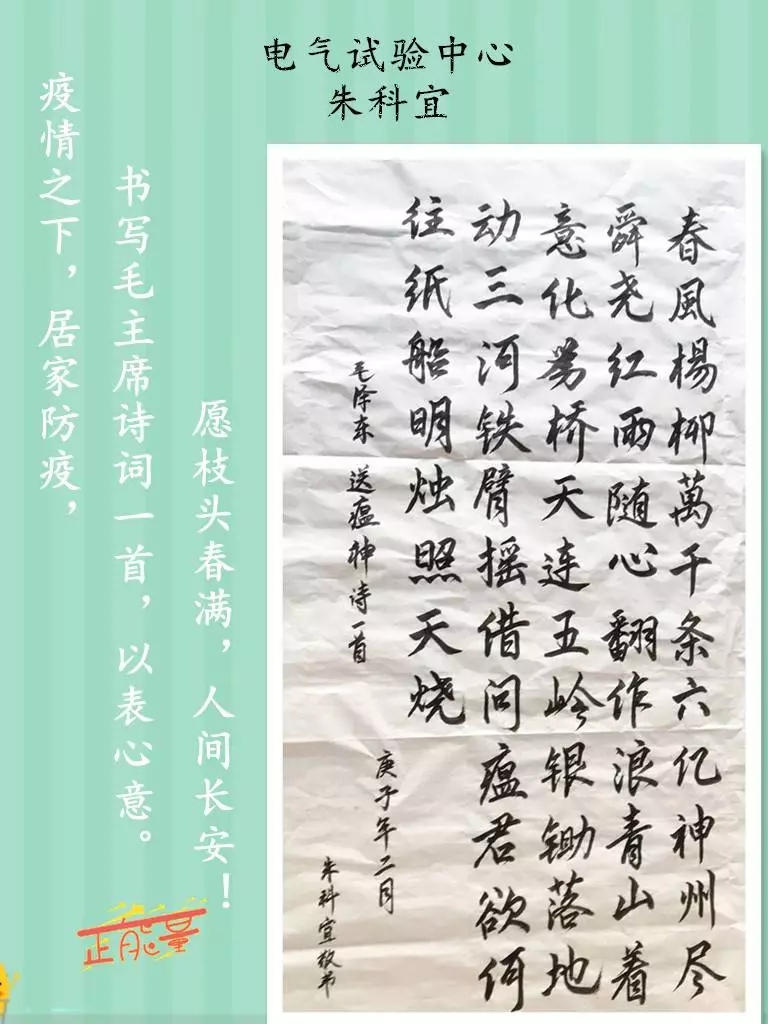 电气试验中心
朱科宜
疫情之下，居家防疫，
书写毛主席诗词一首，以表心意。
愿枝头春满，人间长安！
正能量
春風楊柳萬千条六亿神州尽
舜尧红雨随心翻作浪青山着
意化为桥天连五岭银锄落地
动三河铁臂摇借问瘟君欲何
往纸船明烛照天烧
毛泽东 送瘟神诗一首
庚子年二月
朱科宜敬书